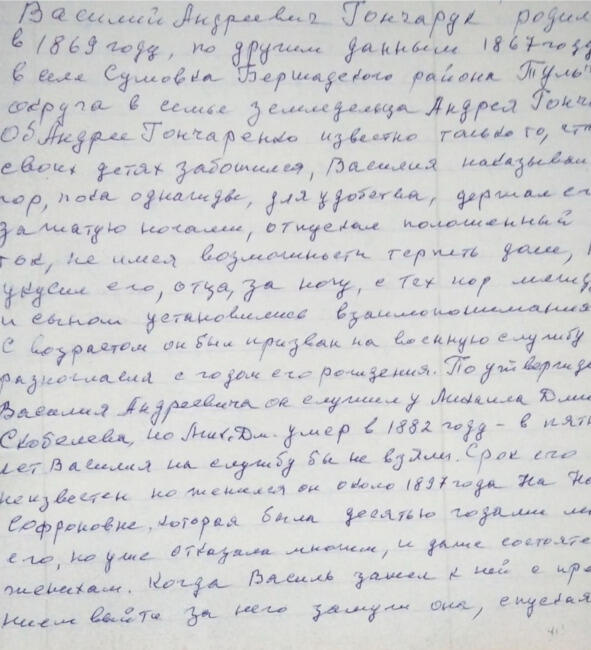 Василий Андреевич Гончарук родил
в 1869 году, по другим данным 1867 году
в селе Сумовка Бершадского района Туль
округа в семье земледельца Андрея Гонч
Об Андрее Гончаренко известно только то, чт
своих детях заботился, Василия наказывал
пор, пока однажды, для удобства, держал ег
зажатую ногами, отпускал положенный
ток, не имея возможности терпеть даже,
укусил его, отца, за ногу, с тех пор между
и сыном установились взаимопонимания
С возрастом он был призван на военную службу
разногласия с годом его рождения. По утвержде
Василия Андреевича он служил у Михаила Дми
Скобелева, но Мих. Дм. умер в 1882 году - в пятн
лет Василия на службу бы не взяли. Срок его
неизвестен но женился он около 1897 года На На
Софроновне, которая была десятью годами мл
его, но уже отказала многим, и даже состояте
женихам. Когда Василь зашел к ней с пре
нием выйти за него замуж она, спуская